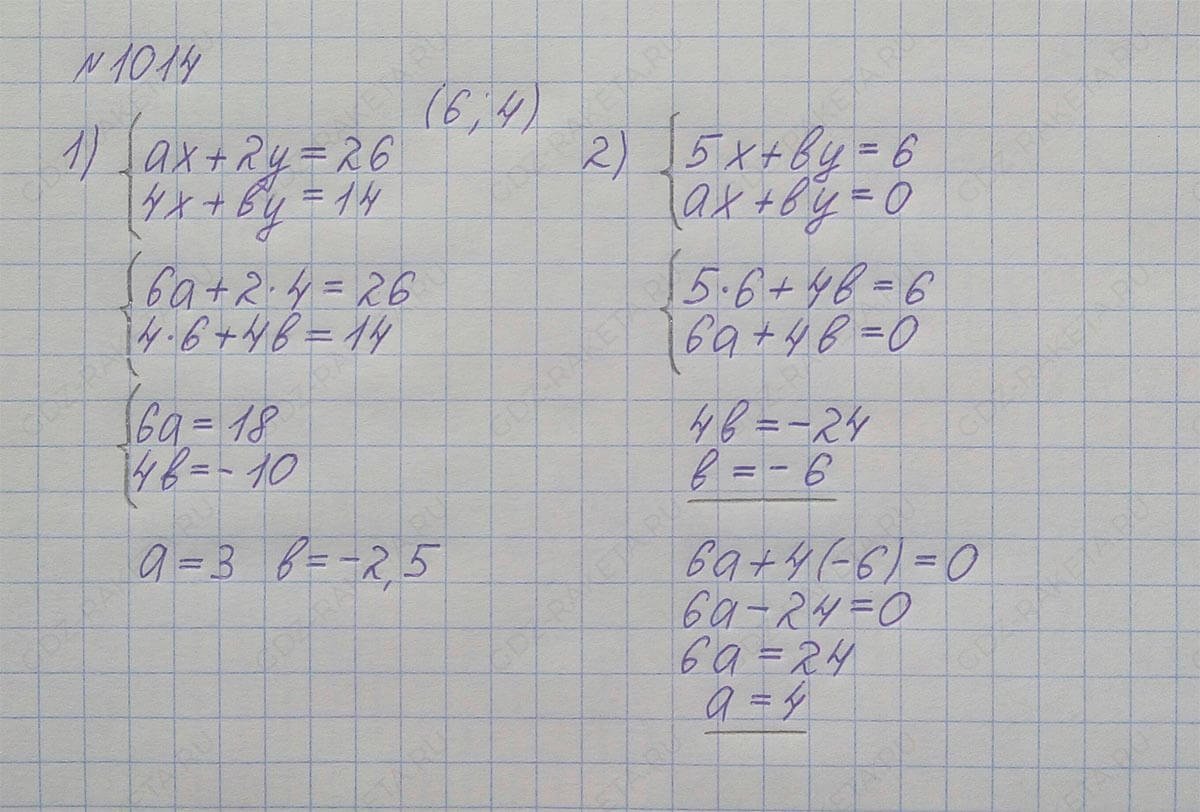 №1014
(6; 4)
1) ax + 2y = 26
4x + by = 14
6a + 2·4 = 26
4·6 + 4b = 14
6a = 18
4b = -10
a = 3 b = -2,5
2) 5x + by = 6
ax + by = 0
5·6 + 4b = 6
6a + 4b = 0
4b = -24
b = -6
6a + 4(-6) = 0
6a - 24 = 0
6a = 24
a = 4
GDZ-RAKETA.RU